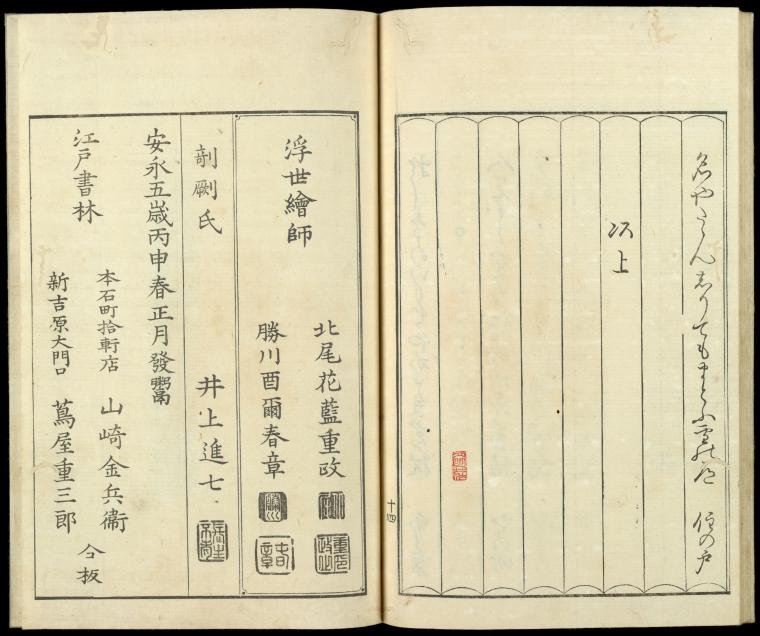 しりてもまとふ雪の道 住の戸
以上
十四
浮世繪師
北尾花藍重政
勝川酉爾春章
剞劂氏 井上進七
安永五歳丙申春正月發鬻
江戸書林
本石町拾軒店 山崎金兵衞
新吉原大門口 蔦屋重三郎
仝板